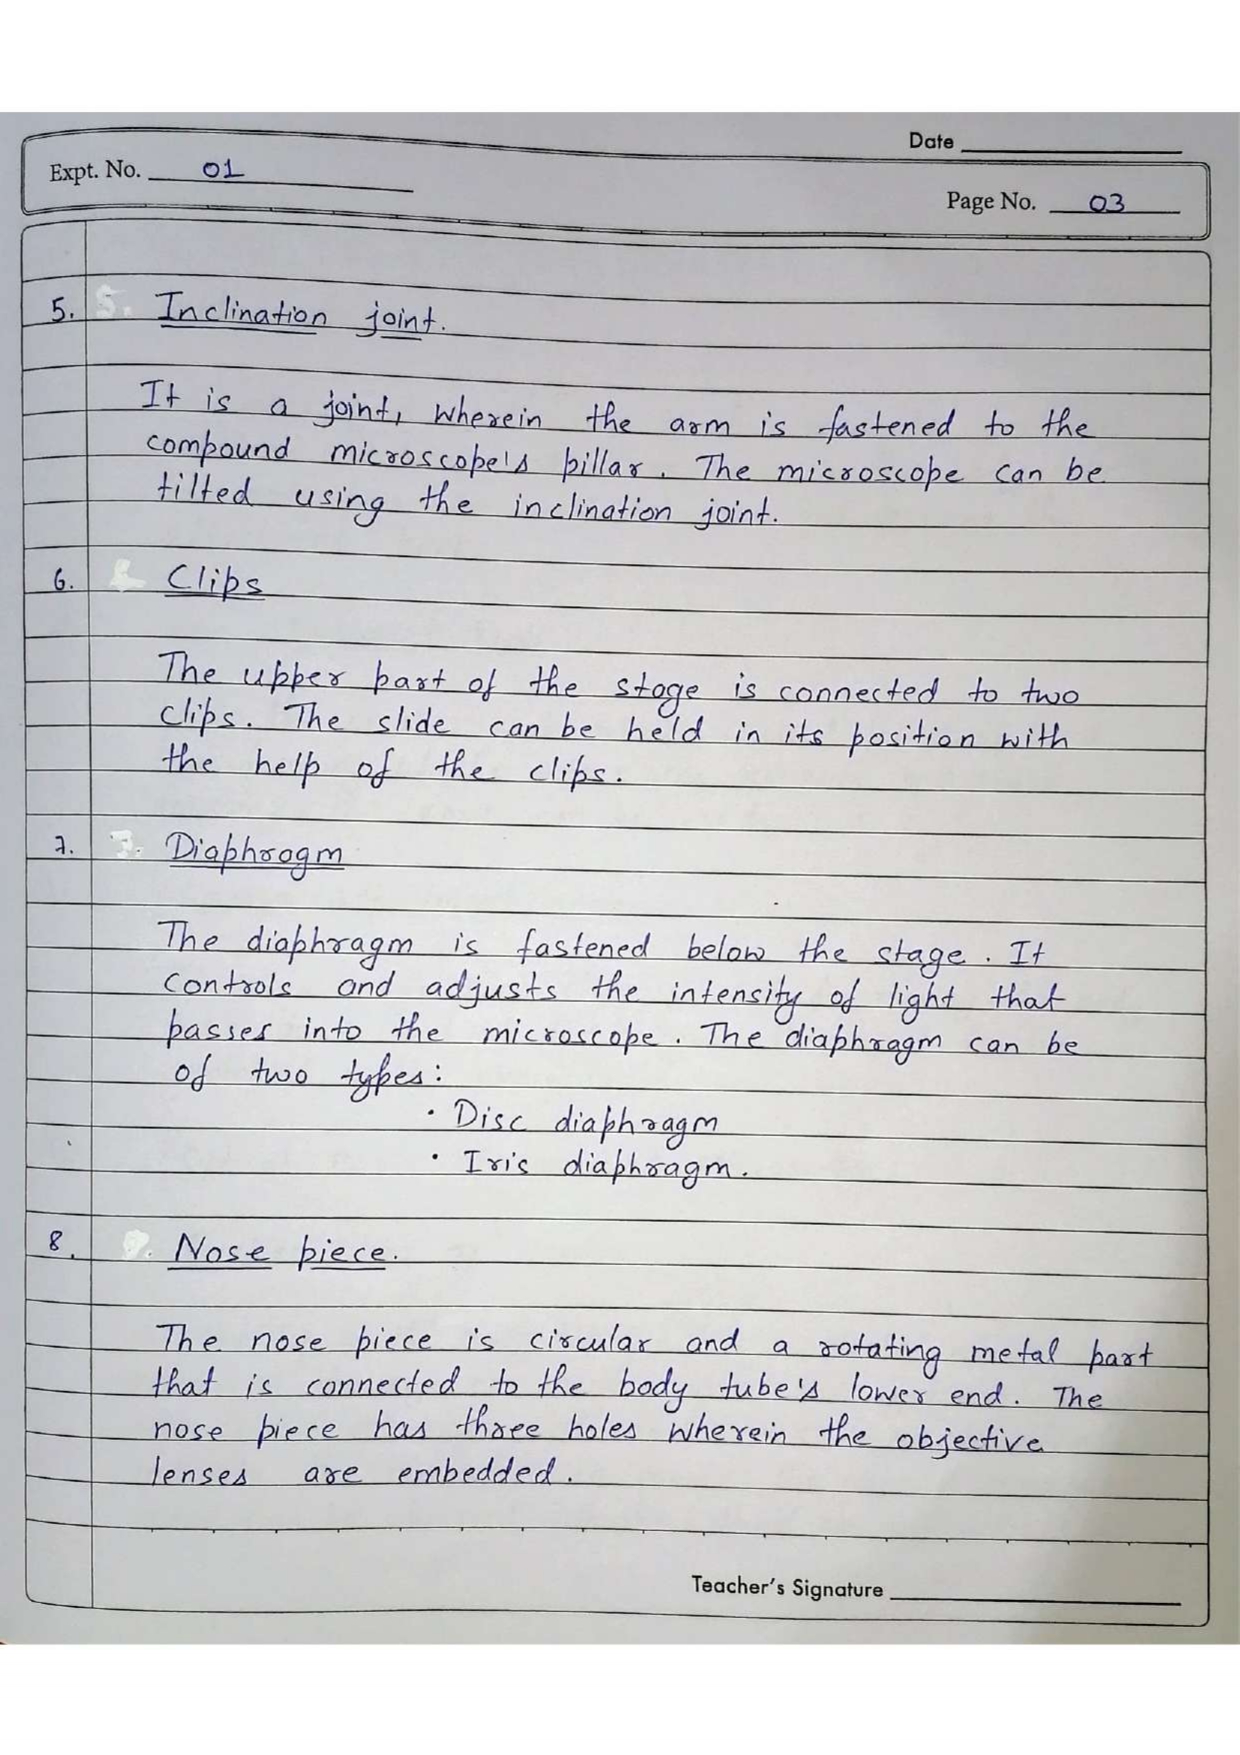 Date
Expt. No. 01
Page No. 03
5. Inclination joint.
It is a joint, wherein the arm is fastened to the
compound microscope's pillar. The microscope can be
tilted using the inclination joint.
6. Clips
The upper part of the stage is connected to two
clips. The slide can be held in its position with
the help of the clips.
7. Diaphragm
The diaphragm is fastened below the stage. It
controls and adjusts the intensity of light that
passes into the microscope. The diaphragm can be
of two types:
· Disc diaphragm
· Iris diaphragm.
8. Nose piece.
The nose piece is circular and a rotating metal part
that is connected to the body tube's lower end. The
nose piece has three holes wherein the objective
lenses are embedded.
Teacher's Signature